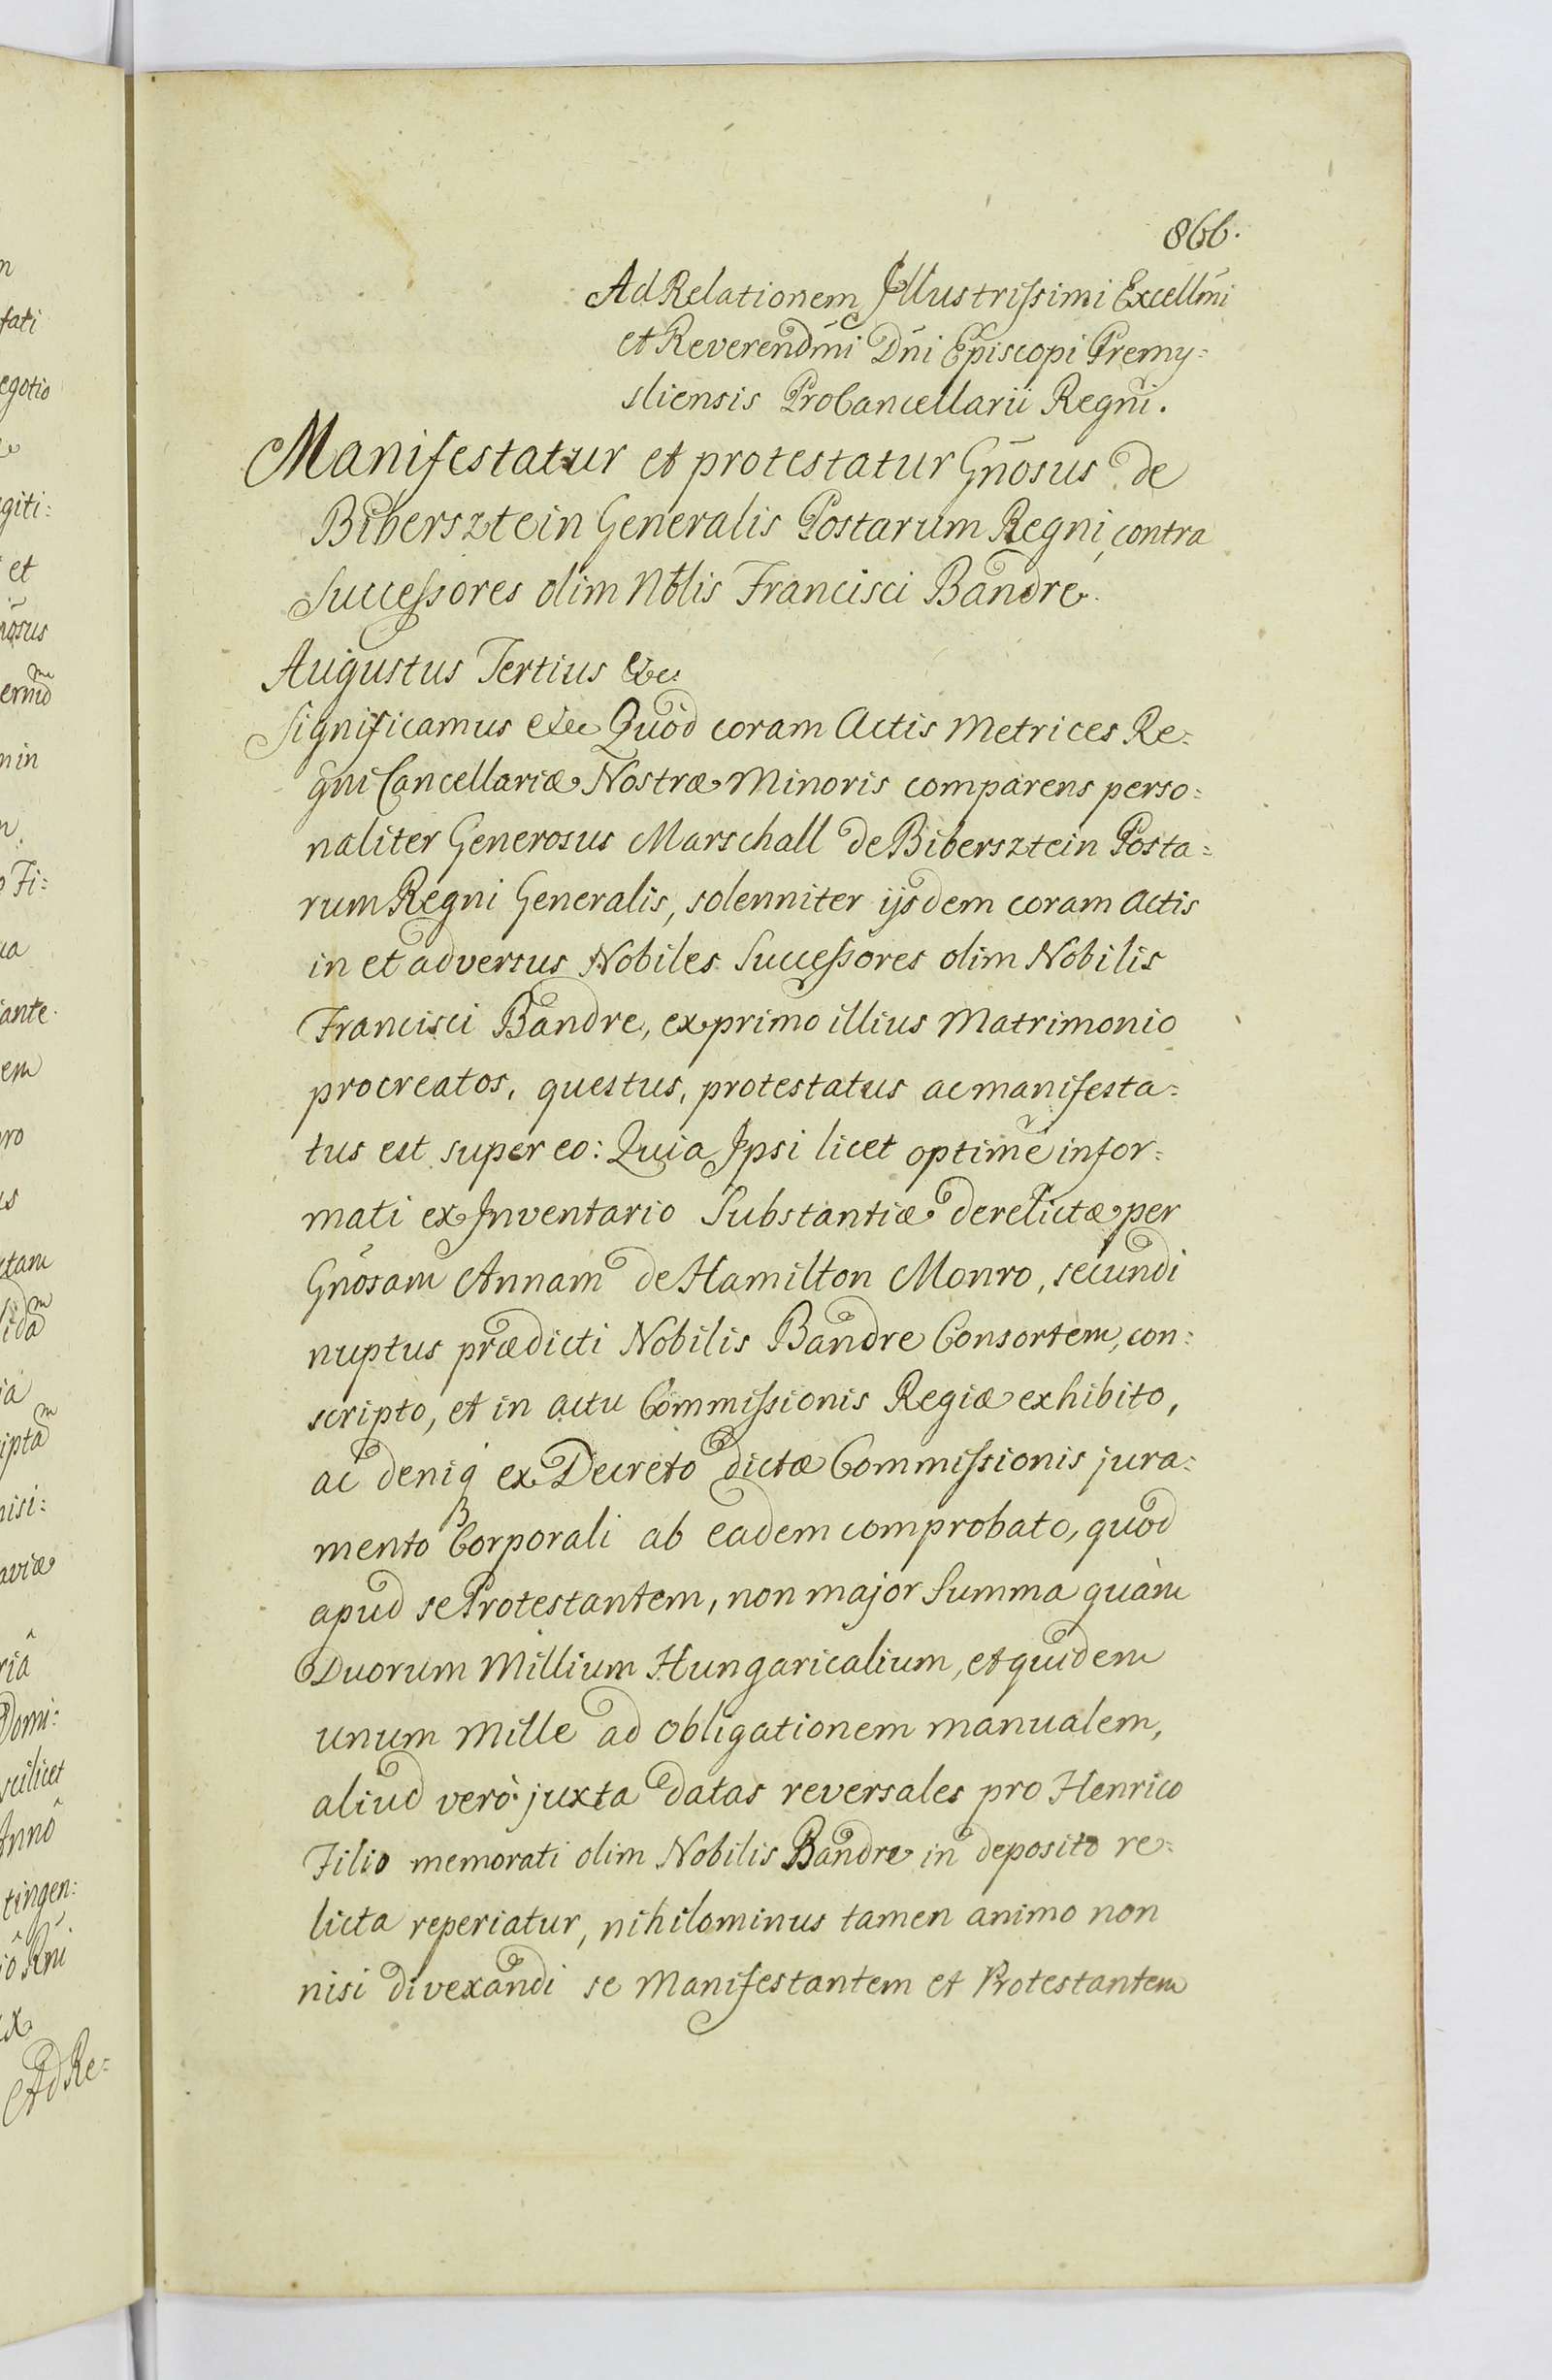 866.
Ad Relationem Illustrissimi Excellm̄i
et Reverendm̄i Dn̄i Episcopi Premy=
sliensis ProCancellarii Regni.
Manifestatur et protestatur Gn̄osus de
Bibersztein Generalis Postarum Regni, contra
Successores olim Nb̄lis Francisci Bandre.
Augustus Tertius &c.
Significamus &c Quod coram Actis Metrices Re=
gni Cancellariæ Nostræ Minoris comparens perso=
naliter Generosus Marschall de Bibersztein Posta=
rum Regni Generalis, solenniter ijsdem coram Actis
in et adversus Nobiles Successores olim Nobilis
Francisci Bandre, ex primo illius Matrimonio
procreatos, questus, protestatus ac manifesta=
tus est super eo: Quia Ipsi licet optimè infor=
mati ex Inventario Substantiæ derelictæ per
Gn̄osam Annam de Hamilton Monro, secundi
nuptus prædicti Nobilis Bandre Consortem, con=
scripto, et in actu Commissionis Regiæ exhibito,
ac deniq ex Decreto dictæ Commissionis jura=
mento Corporali ab eadem comprobato, quod
apud se Protestantem, non major Summa quàm
Duorum Millium Hungaricalium, et quidem
unum Mille ad obligationem manualem,
aliud verò juxta datas reversales pro Henrico
Filio memorati olim Nobilis Bandre in deposito re=
licta reperiatur, nihilominus tamen animo non
nisi divexandi se Manifestantem et Protestantem
fati
egotio
giti:
et
nōsus
nin
Fi:
ante.
em
tam
nisi:
aviæ
riâ
Domi:
scilicet
Annô
tingen:
Ad Re=